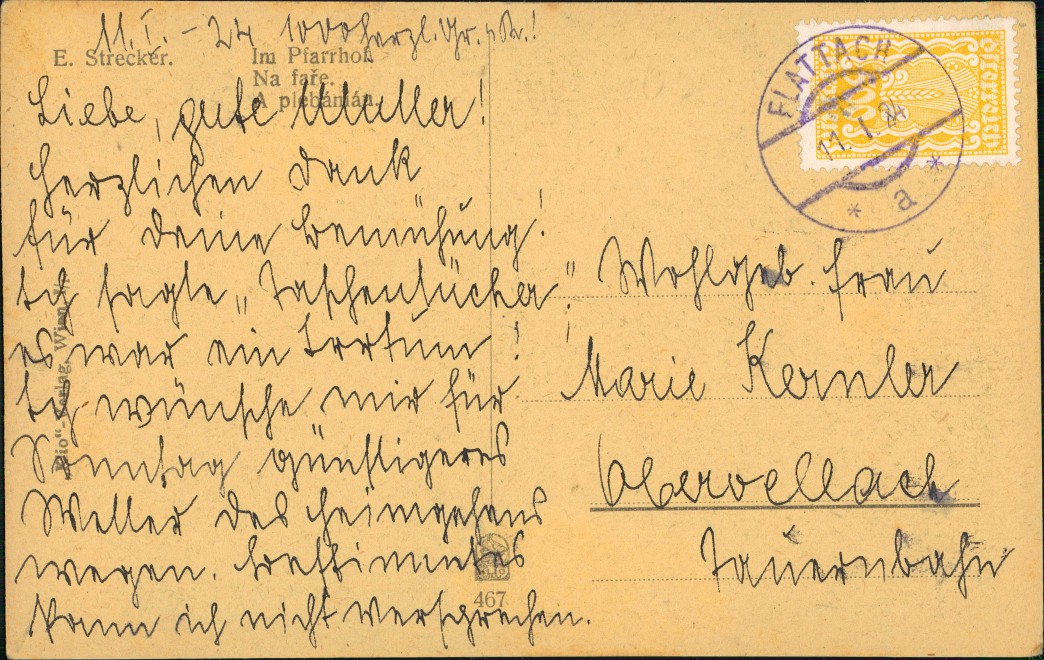 11. I. - 24 1000 herzl. Gr. u. Br.!
E. Strecker.
Im Pfarrhof.
Na faře.
A plebánián.
Liebe, gute Mutter!
Herzlichen Dank
für Deine Bemühung!
Ich sagte „Taschentücher"!
es war ein Irrtum!
Ich wünsche mir für
Sonntag günstigeres
Wetter des Heimgehens
wegen. Bestimmtes
kann ich nicht versprechen.
467
FLATTACH
11. I. 24
* a *
Österreich
Wohlgeb. Frau
Marie Kernler
Obervellach
Tauernbahn